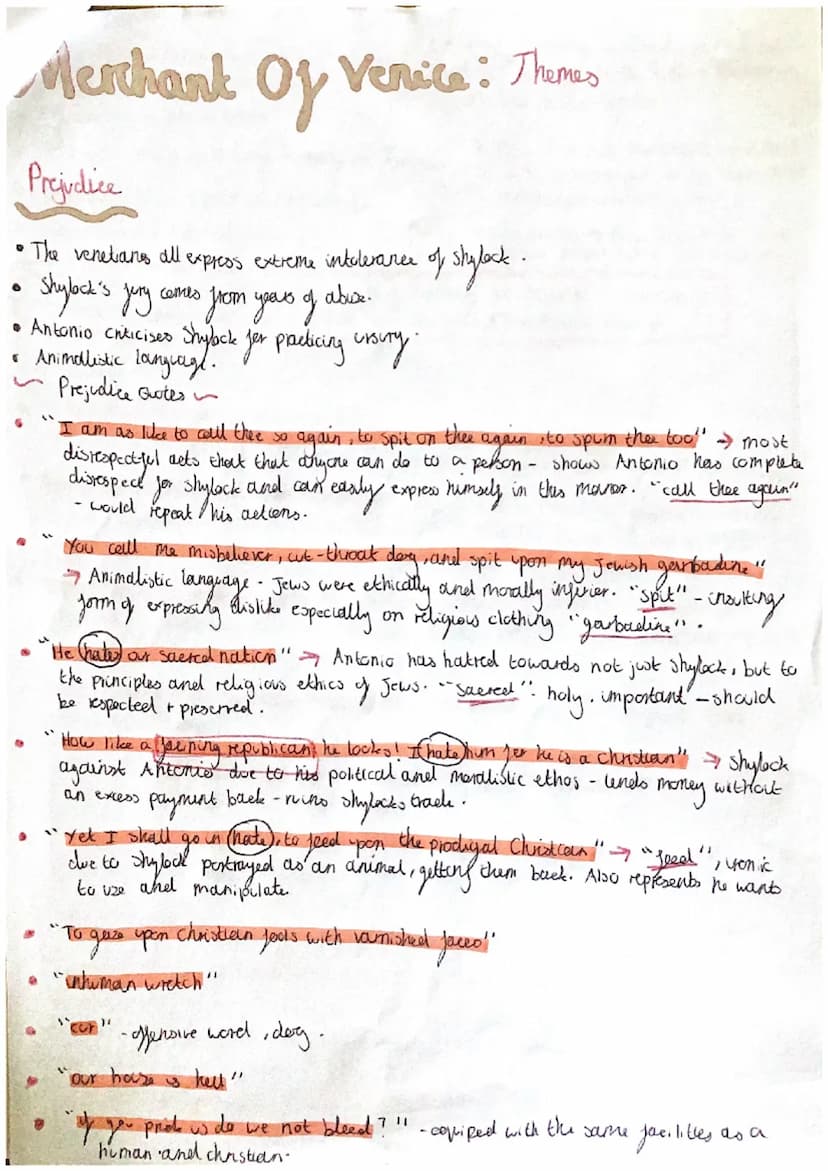 Merchant Of Venice: Themes
Prejudice
• The venetians all express extreme intolerance of shylock.
• Shylock's fury comes from years of abuse.
• Antonio criticises Shylock for practicing usury.
• Animalistic language.
~ Prejudice Quotes ~
• "I am as like to call thee so again, to spit on thee again, to spurn thee too" → most
disrespectful acts that that anyone can do to a person - shows Antonio has complete
disrespect for Shylock and can easily express himself in this manor. "call thee again"
- would repeat his actions.
• "You call me misbeliever, cut-throat dog, and spit upon my Jewish garbadine"
→ Animalistic language - Jews were ethically and morally inferior. "spit" - insulting
form of expressing dislike especially on religious clothing "garbadine".
• "He hates our sacred nation" → Antonio has hatred towards not just Shylock, but to
the principles and religious ethics of Jews. "sacred" - holy, important - should
be respected + preserved.
• "How like a fawning republican he looks! I hate him for he is a christian" → Shylock
against Antonio due to his political and moralistic ethos - lends money without
an excess payment back - ruins shylocks trade.
• "Yet I shall go in hate, to feed upon the prodigal Christian" → "feed", ironic
due to Shylock portrayed as an animal, getting them back. Also represents he wants
to use and manipulate.
• "To gaze upon Christian fools with varnished faces"
• "inhuman wretch"
• "cur" - offensive word, dog.
• "our house is hell"
• "if you prick us do we not bleed?" - equiped with the same facilities as a
human and christian.